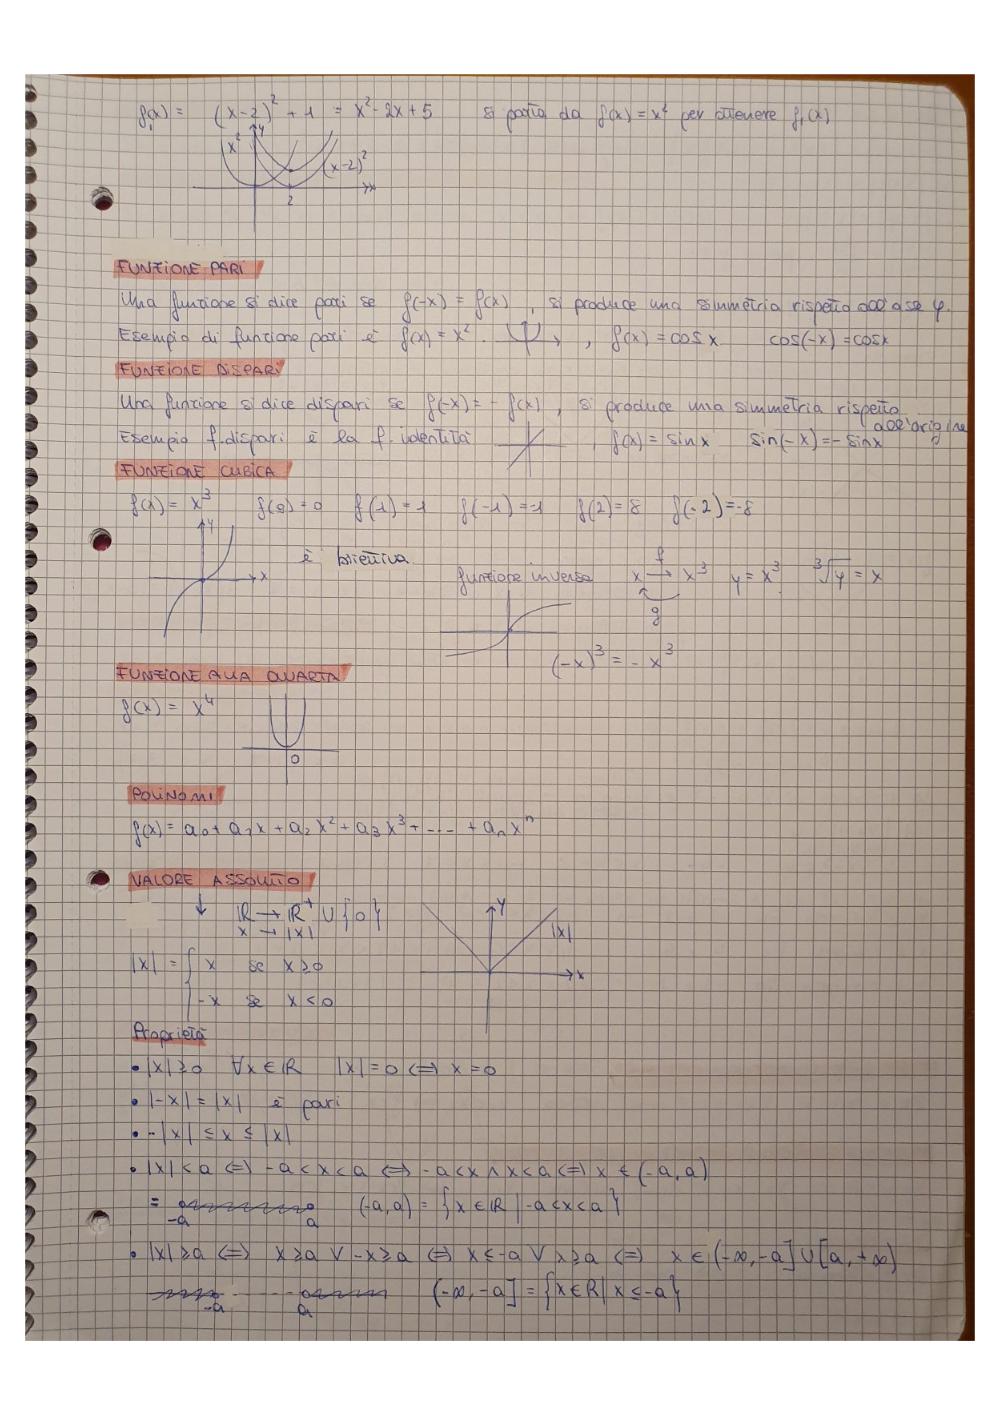 f₁(x) = (x-2)² + 1 = x² - 2x + 5 si parta da f(x) = x² per ottenere f₁(x)
x² y (x-2)²
x
2
FUNZIONE PARI
Una funzione si dice pari se f(-x) = f(x), si produce una simmetria rispetto all'asse y.
Esempio di funzione pari è f(x) = x². , f(x) = cos x cos(-x) = cosx
FUNZIONE DISPARI
Una funzione si dice dispari se f(-x) = - f(x), si produce una simmetria rispetto all'origine
Esempio f. dispari è la f. identità , f(x) = sin x sin(-x) = - sinx
FUNZIONE CUBICA
f(x) = x³ f(0) = 0 f(1) = 1 f(-1) = -1 f(2) = 8 f(-2) = -8
y
x
è biettiva
funzione inversa x →f x³ y = x³ ³√y = x
g
(-x)³ = - x³
FUNZIONE ALLA QUARTA
f(x) = x⁴
0
POLINOMI
f(x) = a₀ + a₁x + a₂x² + a₃x³ + ..... + aₙxⁿ
VALORE ASSOLUTO
↓ ℝ → ℝ⁺ ∪ {0}
x → |x|
y
|x|
x
|x| = { x se x ≥ 0
-x se x < 0
Proprietà
• |x| ≥ 0 ∀x ∈ ℝ |x| = 0 ⇔ x = 0
• |-x| = |x| è pari
• -|x| ≤ x ≤ |x|
• |x| < a ⇔ -a < x < a ⇔ -a < x ∧ x < a ⇔ x ∈ (-a, a)
= -a a (-a, a) = {x ∈ ℝ | -a < x < a}
• |x| ≥ a ⇔ x ≥ a ∨ -x ≥ a ⇔ x ≤ -a ∨ x ≥ a ⇔ x ∈ (-∞, -a] ∪ [a, +∞)
-a a (-∞, -a] = {x ∈ ℝ | x ≤ -a}